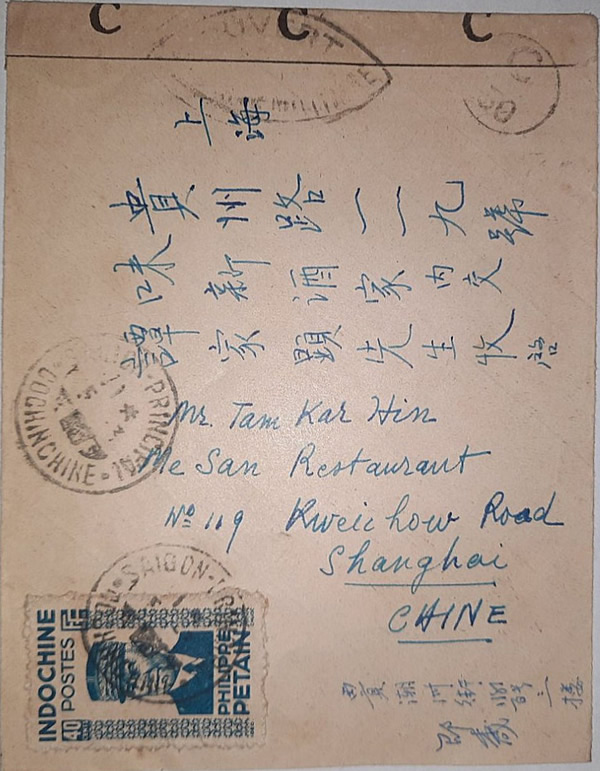 C C C
OUVERT
上海
貴州路一一九號
味新酒家內交
譚家顕先生收啓
Mr. Tam Kar Hin
Me San Restaurant
Nº 119 Kweichow Road
Shanghai
CHINE
COCHINCHINE
PRINCIPAL
SAIGON
INDOCHINE
POSTES
40
PHILIPPE
PETAIN